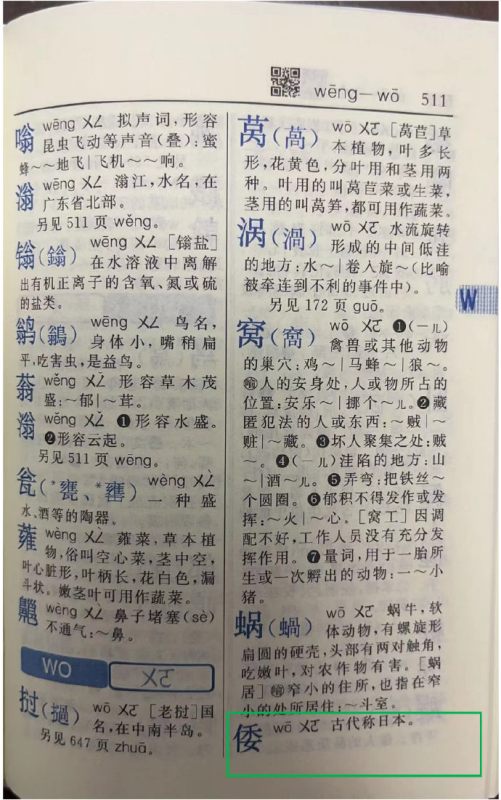 wēng－wō 511
嗡 wēng ㄨㄥ 拟声词，形容
昆虫飞动等声音(叠)：蜜
蜂～～地飞|飞机～～响。
滃 wēng ㄨㄥ 滃江，水名，在
广东省北部。
另见511页wěng。
鎓(鎓) wēng ㄨㄥ [鎓盐]
在水溶液中离解
出有机正离子的含氧、氮或硫
的盐类。
鹟(鶲) wēng ㄨㄥ 鸟名，
身体小，嘴稍扁
平，吃害虫，是益鸟。
蓊 wěng ㄨㄥ 形容草木茂
盛：～郁|～茸。
滃 wěng ㄨㄥ ❶形容水盛。
❷形容云起。
另见511页wēng。
瓮(*甕、*罋) wèng ㄨㄥ
一种盛
水、酒等的陶器。
蕹 wèng ㄨㄥ 蕹菜，草本植
物，俗叫空心菜，茎中空，
叶心脏形，叶柄长，花白色，漏
斗状。嫩茎叶可用作蔬菜。
齆 wèng ㄨㄥ 鼻子堵塞(sè)
不通气：～鼻。
WO ㄨㄛ
挝(撾) wō ㄨㄛ [老挝]国
名，在中南半岛。
另见647页zhuā。
莴(萵) wō ㄨㄛ [莴苣]草
本植物，叶多长
形，花黄色，分叶用和茎用两
种。叶用的叫莴苣菜或生菜，
茎用的叫莴笋，都可用作蔬菜。
涡(渦) wō ㄨㄛ 水流旋转
形成的中间低洼
的地方：水～|卷入旋～(比喻
被牵连到不利的事件中)。
另见172页guō。
窝(窩) wō ㄨㄛ ❶(－儿)
禽兽或其他动物
的巢穴：鸡～|马蜂～|狼～。
喻人的安身处，人或物所占的
位置：安乐～|挪个～儿。❷藏
匿犯法的人或东西：～贼|～
赃|～藏。❸坏人聚集之处：贼
～。❹(－儿)洼陷的地方：山
～|酒～儿。❺弄弯：把铁丝～
个圆圈。❻郁积不得发作或发
挥：～火|～心。[窝工]因调
配不好，工作人员没有充分发
挥作用。❼量词，用于一胎所
生或一次孵出的动物：一～小
猪。
蜗(蝸) wō ㄨㄛ 蜗牛，软
体动物，有螺旋形
扁圆的硬壳，头部有两对触角，
吃嫩叶，对农作物有害。[蜗
居]喻窄小的住所，也指在窄
小的处所居住：～斗室。
倭 wō ㄨㄛ 古代称日本。
W